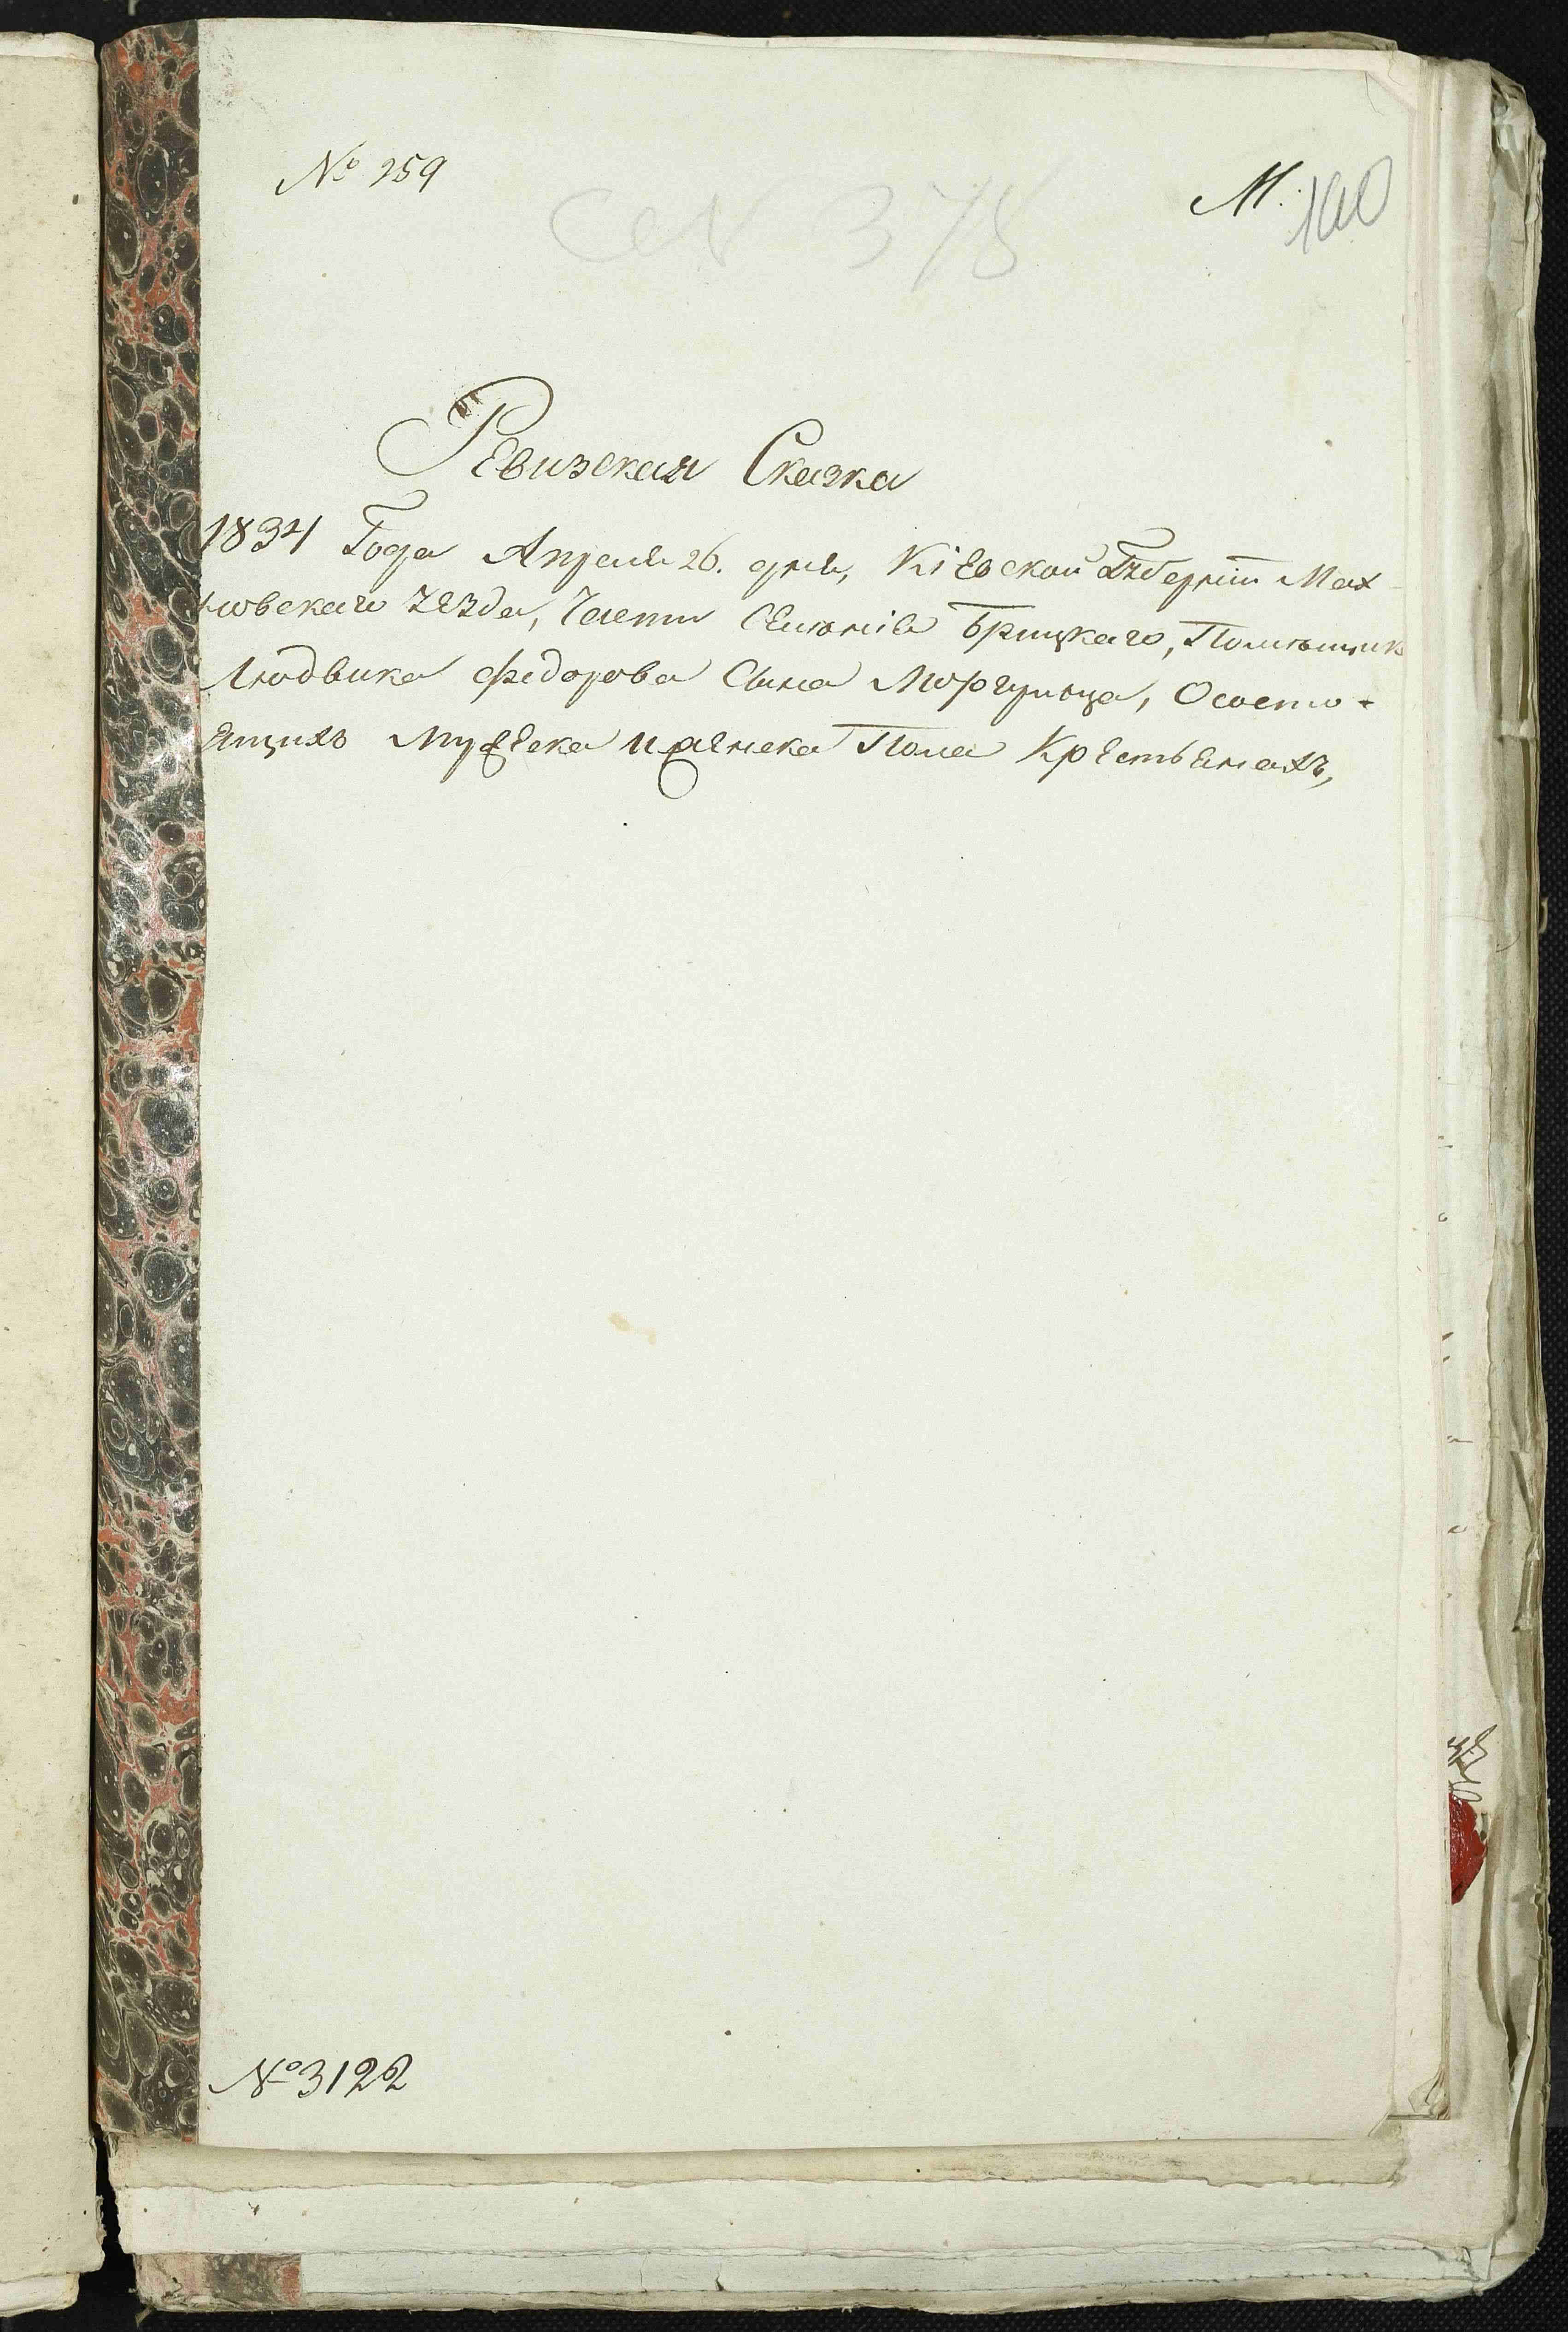 № 259
М.
100
378
Ревизская Сказка
1834 Года Апреля 26. дня, Кіевской Губерніи Мах-
новскаго уезда, Части Селенія Брицкаго, Помѣщик
Людвика Федорова Сына Моргульца, Ососто-
ящихъ Мужеска и женска Пола Крестьянахъ,
№ 3122